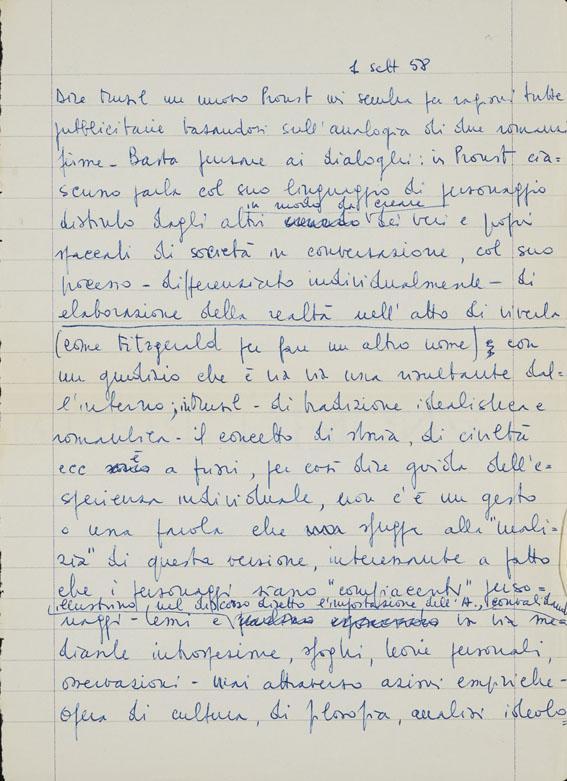 1 sett 58
Dire Musil un nuovo Proust mi sembra per ragioni tutte
pubblicitarie basandosi sull'analogia di due romanzi
fiume - Basta pensare ai dialoghi: in Proust cia=
scuno parla col suo linguaggio di personaggio
in modo da creare
distinto dagli altri dei veri e propri
spaccati di società in conversazione, col suo
processo - differenziato individualmente - di
elaborazione della realtà nell'atto di viverla
(come Fitzgerald per fare un altro nome) e con
un giudizio che è via via una risultante dal=
l'interno; in Musil - di tradizione idealistica e
romantica - il concetto di storia, di civiltà
ecc è a priori, per così dire guida dell'e=
sperienza individuale, non c'è un gesto
o una parola che sfugga alla "mali=
zia" di questa versione, interessante a patto
che i personaggi siano "compiacenti" perso=
illustrino, nel discorso diretto l'impostazione dell'A.,
naggi-temi e via via me=
diante introspezione, sfoghi, teorie personali,
osservazioni - mai attraverso azioni empiriche -
Opera di cultura, di filosofia, analisi ideolo=